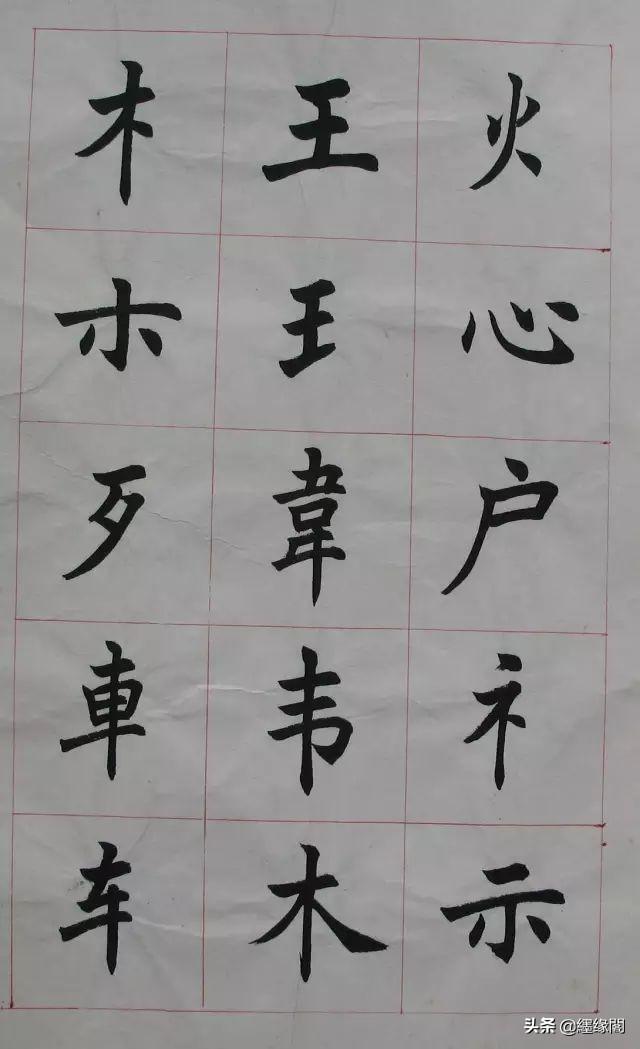 火心户礻示
王王韋韦木
木朩歹車车
头条 @缘閣